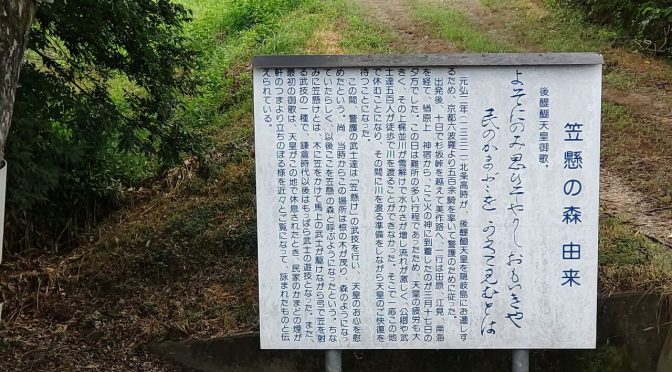 笠懸の森 由来
後醍醐天皇御歌
よそにのみ思ひぞやりしおもいきや
民のかまどをかくて見むとは
元弘二年(一三三二)北条高時が、後醍醐天皇を隠岐島にお遷しす
るため、京都六波羅より五百余騎を率いて警護のために従った。
出発後、十日で杉坂峠を越えて美作路へ、一行は田原、江見、南海
を経て、楢原上 神宿から、ここ火の神に到着したのが三月十七日の
夕方でした。この日は難所の多い行程であったため、天皇の疲労も大
きく、その上梶並川が雪解けで水かさが増し流れが激しく、公卿や武
士達五百人が徒歩で川を渡ることができなかった。そこで一応この地
で休むことになり、その間に川を渡る準備をしながら天皇のご快復を
待つことになった。
この間、警護の武士達は「笠懸け」の武技を行い、天皇のお心を慰
めたという。尚、当時からこの場所は椋の木が茂り、森のようになっ
ていたらしく、以後ここを笠懸の森と呼ぶようになったという。ちな
みに笠懸けとは、木に笠をかけて馬上の武士が駆けながら弓で笠を射
る武技の一種で、鎌倉時代以後はもっぱら武士の遊技となった。また、
最初の御歌は、天皇がこの地で休息されたとき、民家のかまどの煙が
軒のつまより立ちのぼる様を近々とご覧になって、詠まれたものと伝
えられている。